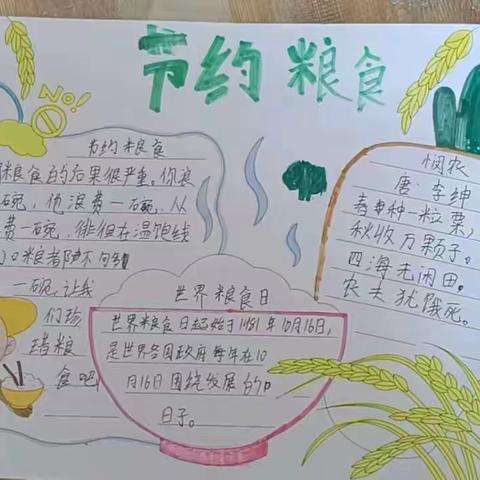 节约粮食
NO!
节约粮食
粮食的后果很严重。你浪
碗，他浪费一碗，从
费一碗，徘徊在温饱线
口粮者
一碗，让我
们珍
惜粮
食吧
世界粮食日
世界粮食日起始于1981年10月16日，
是世界各国政府每年在10
月16日围绕发展的
日子。
悯农
唐·李绅
春种一粒粟，
秋收万颗子。
四海无闲田，
农夫犹饿死。